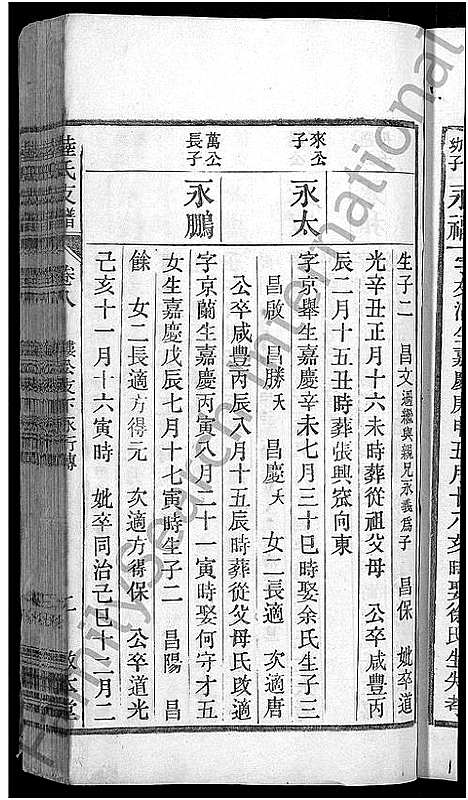 幼子 永福
生子二 昌文過繼與親兄永義爲子 昌保 妣卒道
光辛丑正月十六未時葬從祖父母 公卒咸豐丙
辰二月十五丑時葬張興窊向東
來公子 永太
字京舉生嘉慶辛未七月三十巳時娶余氏生子三
昌啟 昌勝夭 昌慶夭 女二長適 次適唐
公卒咸豐丙辰八月十五辰時葬從父母氏改適
萬公長子 永鵬
字京蘭生嘉慶丙寅八月二十一寅時娶何守才五
女生嘉慶戊辰七月十七寅時生子二 昌陽 昌
餘 女二長適方得元 次適方得保 公卒道光
己亥十一月十六寅時 妣卒同治己巳十二月二
陸氏支譜 卷八 敦本堂
Familysearch International